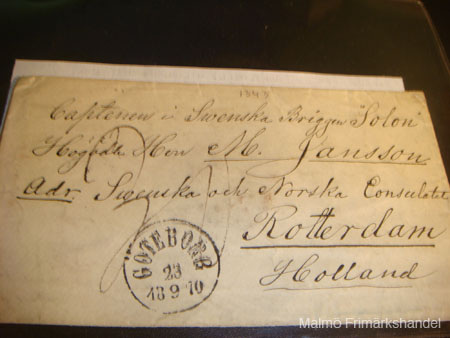 1848
Captenen i Swenska Briggen "Solon"
Högädla Herr M. Jansson
Adr. Swenska och Norska Consulatet
Rotterdam
Holland
GÖTEBORG
23
18 9 70
Malmö Frimärkshandel